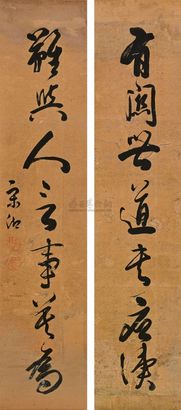 有關世道書應讀
難與人言事莫為
宋湘